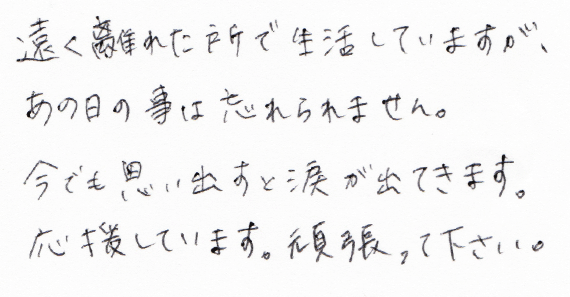 遠く離れた所で生活していますが、
あの日の事は忘れられません。
今でも思い出すと涙が出てきます。
応援しています。頑張って下さい。